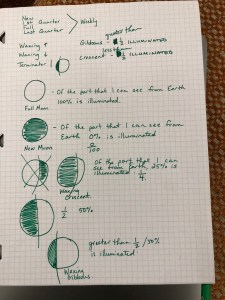 New
1st Quarter
Full
Last Quarter
> Weekly
Waxing ↑
Waning ↓
Terminator
greater than
Gibbous 1/2 ILLUMINATED
less than
Crescent 1/2 ILLUMINATED
Full Moon
- Of the part that I can see from Earth
100% is illuminated.
New Moon
- Of the part that I can see from
Earth 0% is illuminated
0/100
Waxing
Crescent
Of the part that I can
see from Earth, 25% is
illuminated 1/4
1/2 50%
Waxing
Gibbous
greater than 1/2 / 50%
is illuminated